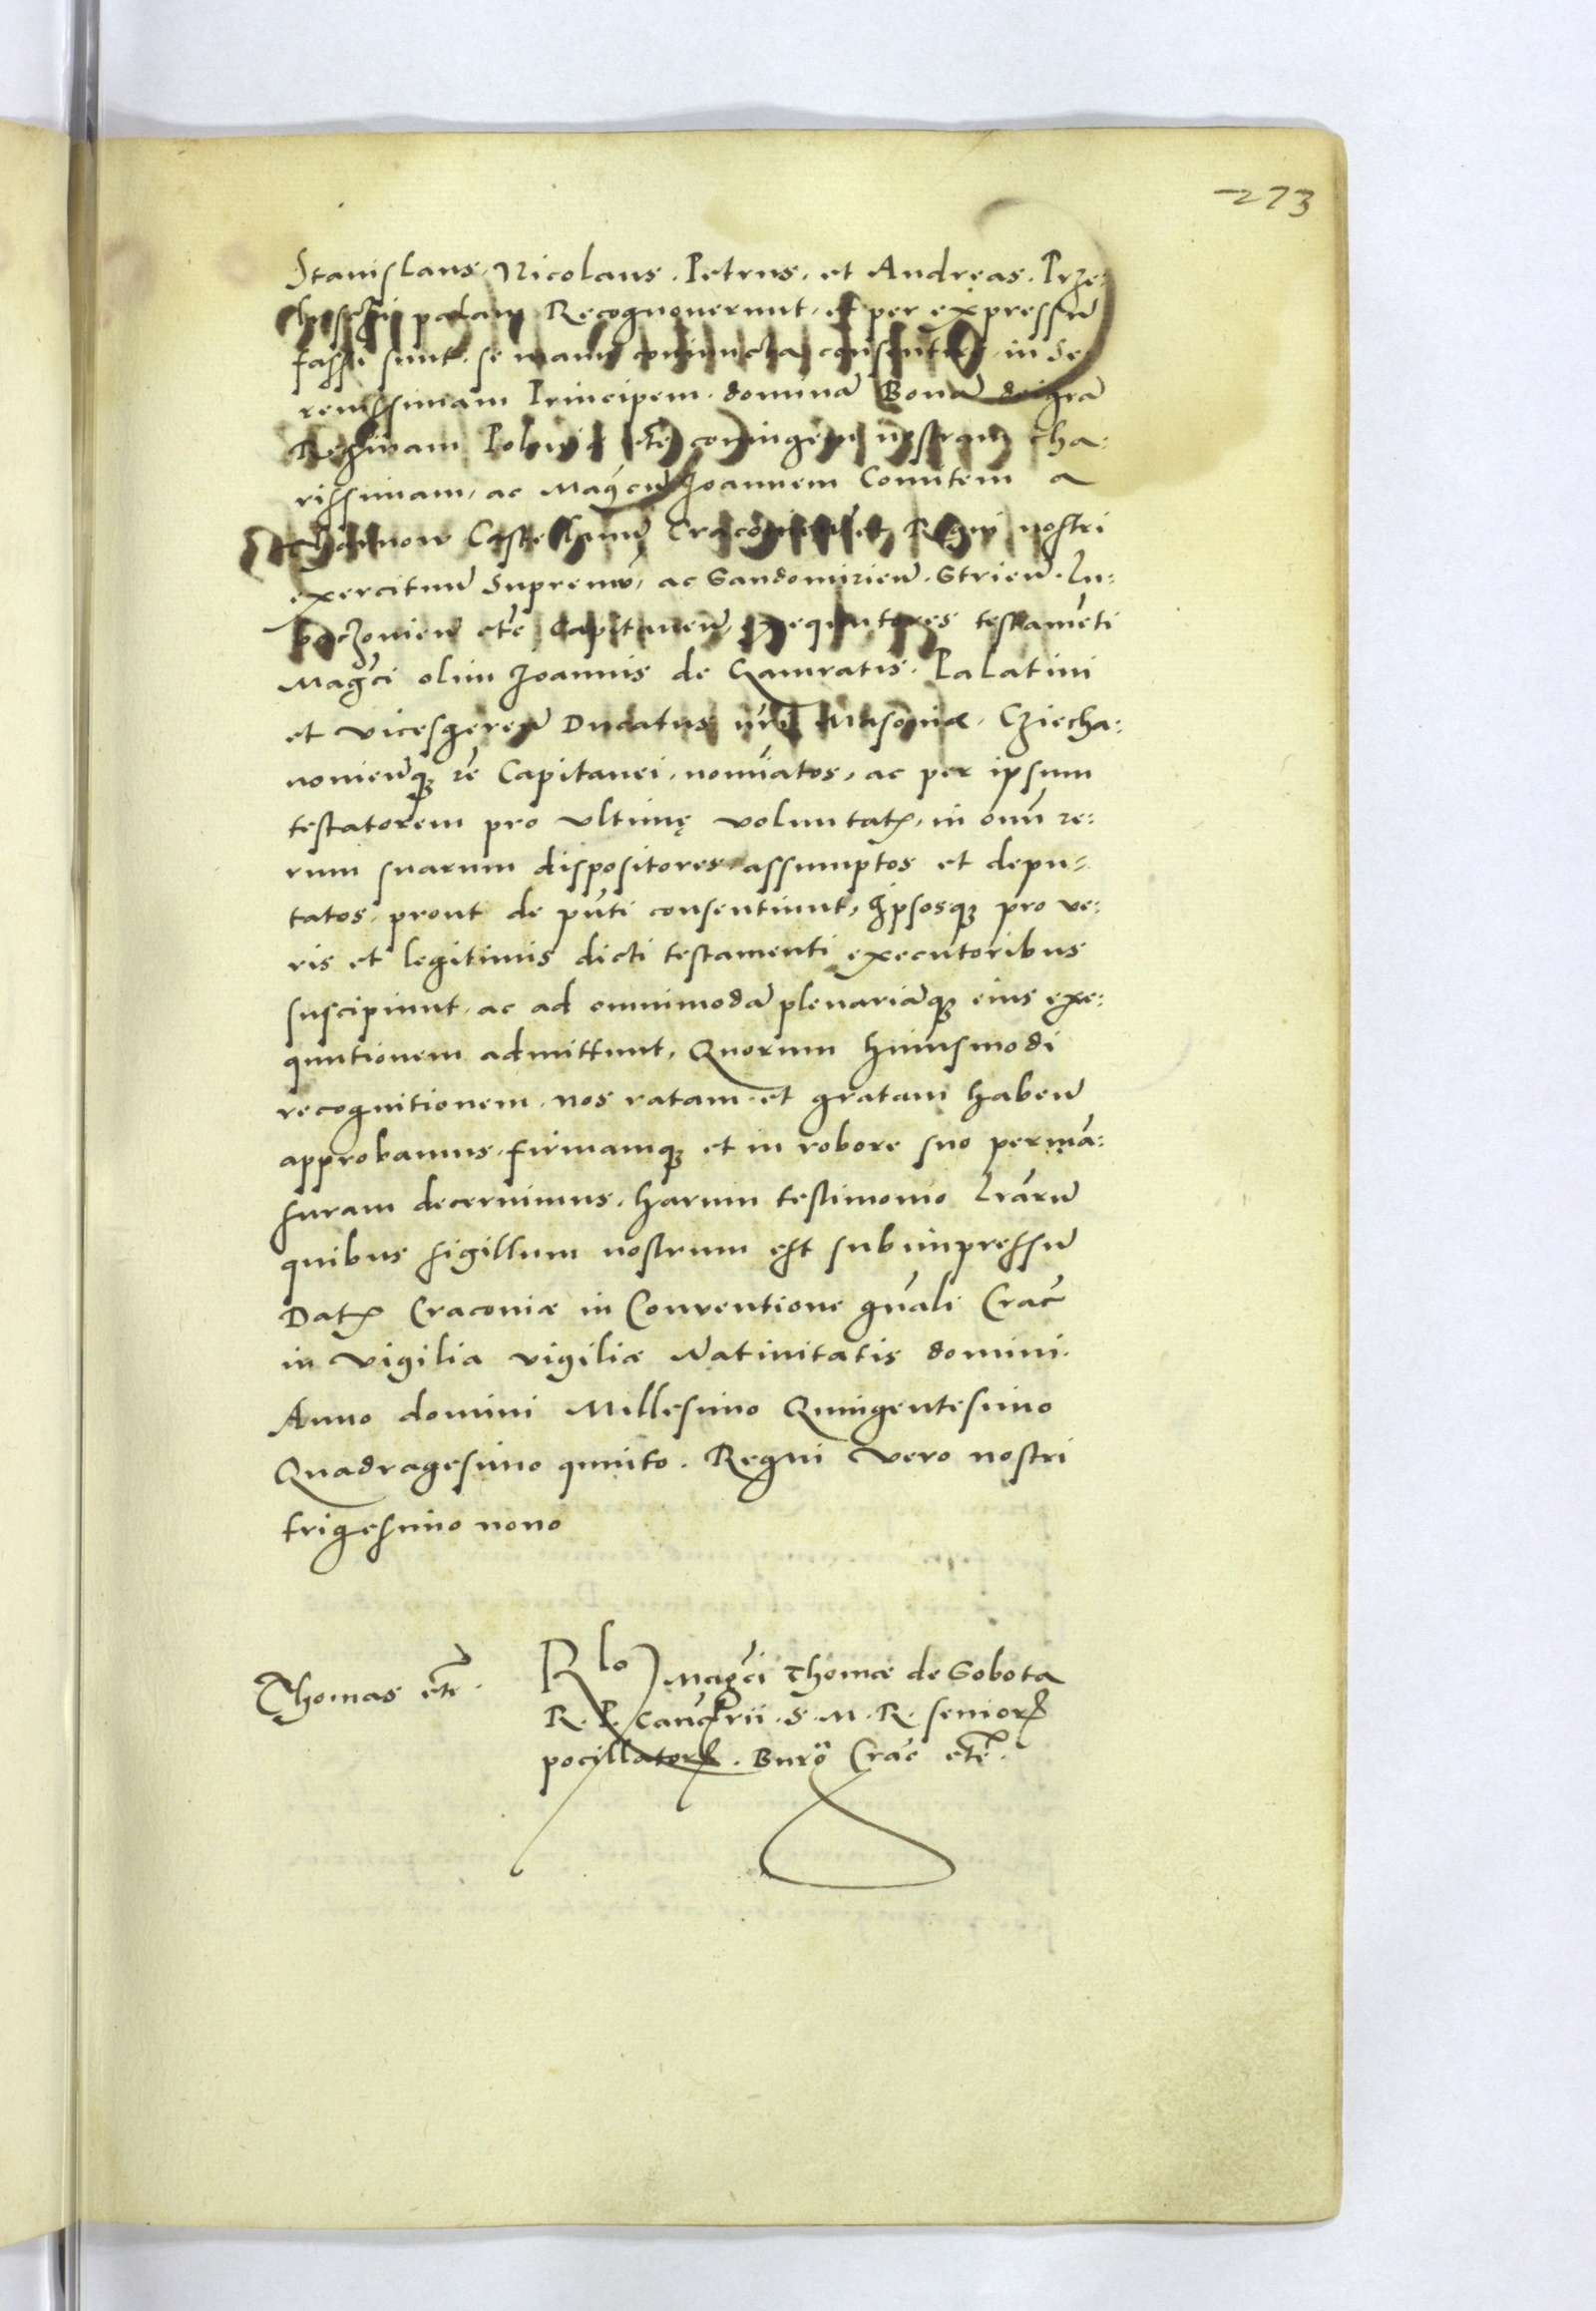 273
Stanislaus, Nicolaus, Petrus, et Andreas, Prze:
palam Recognoverunt, et per expressũ
fassi sunt, se manu coniuncta consentire in Se
renissimam Principem, dominã Bonã dei grã
Reginam Poloniæ etc̃ coniugem nostram cha:
rissimam, ac Magc̃ũ Joannem Comitem a
Tharnow Castellanũ Cracovieñ et Regni nostri
exercituũ Supremũ, ac Sandomirieñ. Strieñ. Lu:
baczovieñ etc̃ Capitaneũ, exequutores testamẽti
Magc̃i olim Joannis de Gamratis. Palatini
et vicesgereñ Ducatus nrĩ Masoviæ, Cziecha:
novieñq3 zc̃ Capitanei, nomĩatos, ac per ipsum
testatorem pro ultimę voluntatꝭ, in omñ re:
rum suarum dispositores assumptos et depu=
tatos, prout de pñti consentiunt, Ipsosq3 pro ve:
ris et legitimis dicti testamenti executoribus
suscipiunt, ac ad omnimodã plenariãq3 eius exe:
quutionem admittunt, Quorum huiusmodi
recognitionem, nos ratam et gratam habeñ
approbamus, firmamq3 et in robore suo permã:
suram decernimus, harum testimonio lrãrũ
quibus sigillum nostrum est subimpressũ
Datꝭ Cracoviæ in Conventione gñali Crac̃
in vigilia vigiliæ Nativitatis domini.
Anno domini Millesimo Quingentesimo
Quadragesimo quinto. Regni vero nostri
trigesimo nono
Thomas etc̃.
Rlo Magc̃i Thomæ de Sobota
R. P. Canc̃rii. S. M. R. seniorꝭ
pocillatorꝭ. Burg̃ Crac̃ etc̃.